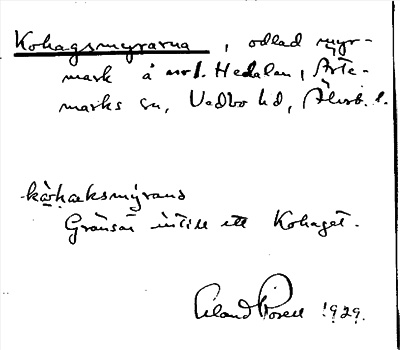 Kohagsmyrarna, odlad myr-
mark å nr 1. Hedalan, Årte-
marks sn, Vedbo hd, Älvsb. l.
kò̀rhæksmýrana
Gränsar intill ett Kohaget.
Erland Rosell 1929.